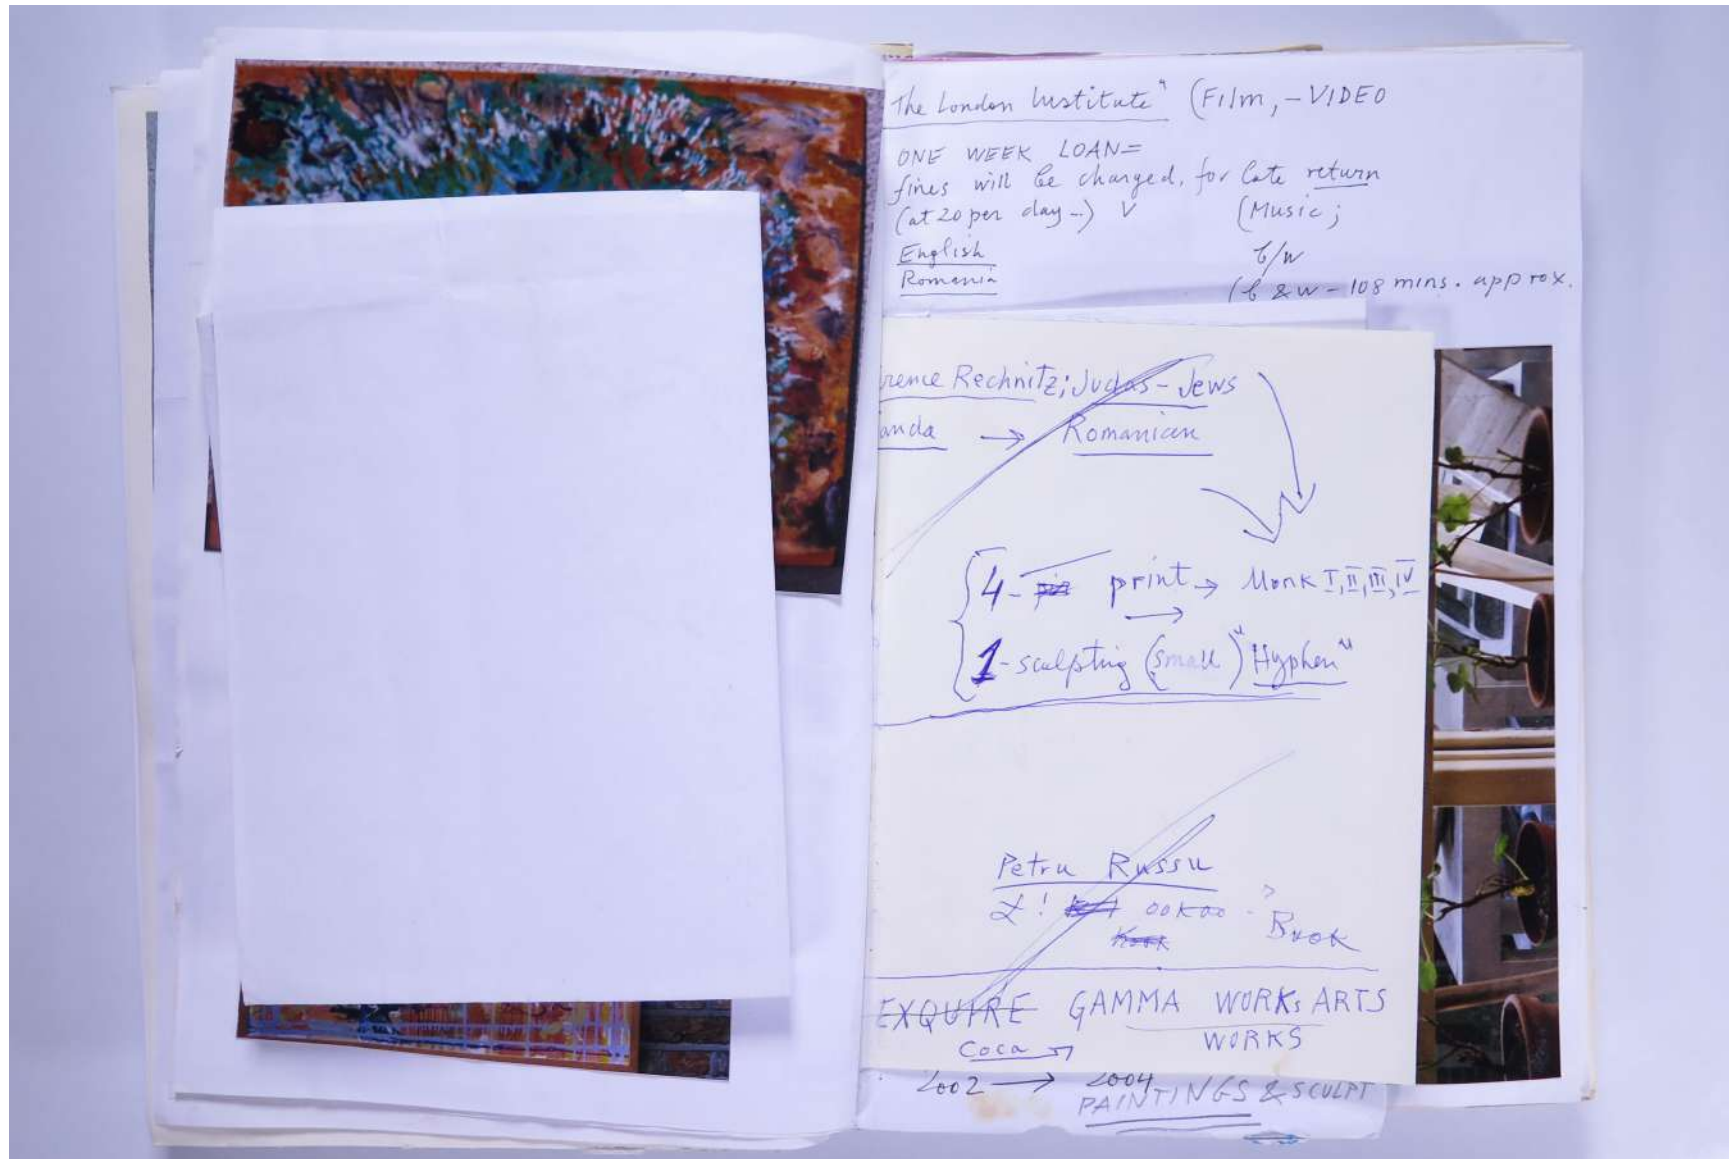 The London Institute" (Film, - VIDEO
ONE WEEK LOAN =
fines will be charged, for late return
(at 20 per day -) V (Music;
English b/w
Romania (b & w - 108 mins. approx.
rence Rechnitz; Judas - Jews
anda → Romanian
4 - print → Monk I, II, III, IV
1 - sculpting (small) "Hyphen"
Petru Russu
ookoo
Book
EXQUIRE GAMMA WORKs ARTS
Coca WORKS
2002 → 2004
PAINTINGS & SCULPT